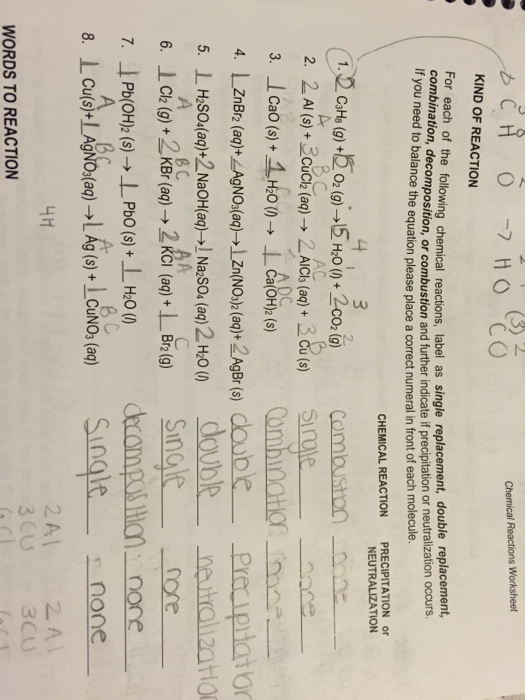 Chemical Reactions Worksheet
C H O → H O CO
KIND OF REACTION
For each of the following chemical reactions, label as single replacement, double replacement,
combination, decomposition, or combustion and further indicate if precipitation or neutralization occurs.
If you need to balance the equation please place a correct numeral in front of each molecule.
CHEMICAL REACTION PRECIPITATION or
NEUTRALIZATION
4 1 3 2
1. C3H8 (g) + O2 (g) → H2O (l) + 2 CO2 (g) combustion none
A BC AC B
2. 2 Al (s) + 3 CuCl2 (aq) → 2 AlCl3 (aq) + 3 Cu (s) single none
3. 1 CaO (s) + 1 H2O (l) → 1 Ca(OH)2 (s) Combination none
4. 1 ZnBr2 (aq) + 2 AgNO3(aq) → 1 Zn(NO3)2 (aq) + 2 AgBr (s) double precipitation
5. 1 H2SO4(aq) + 2 NaOH(aq) → 1 Na2SO4 (aq) 2 H2O (l) double neutralization
A BC BA C
6. 1 Cl2 (g) + 2 KBr (aq) → 2 KCl (aq) + 1 Br2 (g) Single none
7. 1 Pb(OH)2 (s) → 1 PbO (s) + 1 H2O (l) decomposition none
A BC A BC
8. 1 Cu(s) + 1 AgNO3(aq) → 1 Ag (s) + 1 CuNO3 (aq) Single none
4H
2Al 2Al
3Cu 3Cu
WORDS TO REACTION